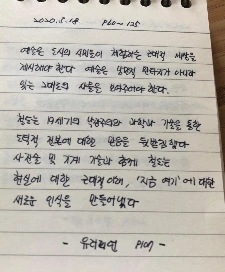 2020. 5. 18 P60~125
예술은 도시의 시민들이 처험하는 근대적 세계를
제시해야 한다 예술은 낭만적 판타지가 아니라
있는 그대로의 사물을 보여주어야 한다.
철도는 19세기의 낭만주의와 과학과 기술을 통한
도덕적 진보에 대한 믿음을 뒷받침했다
사진술 및 기계 기술과 함께 철도는
현실에 대한 근대적 이해, '지금 여기'에 대한
새로운 인식을 만들어냈다
- P109 -